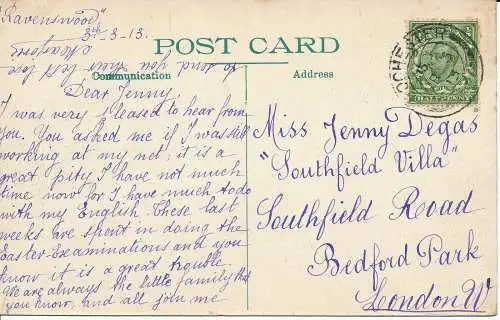 "Ravenswood"
3rd-3-13.
to send you their best love
POST CARD
Communication
Address
Dear Jenny,
I was very pleased to hear from
you. You asked me if I was still
working at my net, it is a
great pity I have not much
time now for I have much to do
with my English. These last
weeks are spent in doing the
Easter Examinations and you
know it is a great trouble.
We are always the little family that
you know, and all join me
Miss Jenny Degas
"Southfield Villa"
Southfield Road
Bedford Park
London W.
HALFPENNY